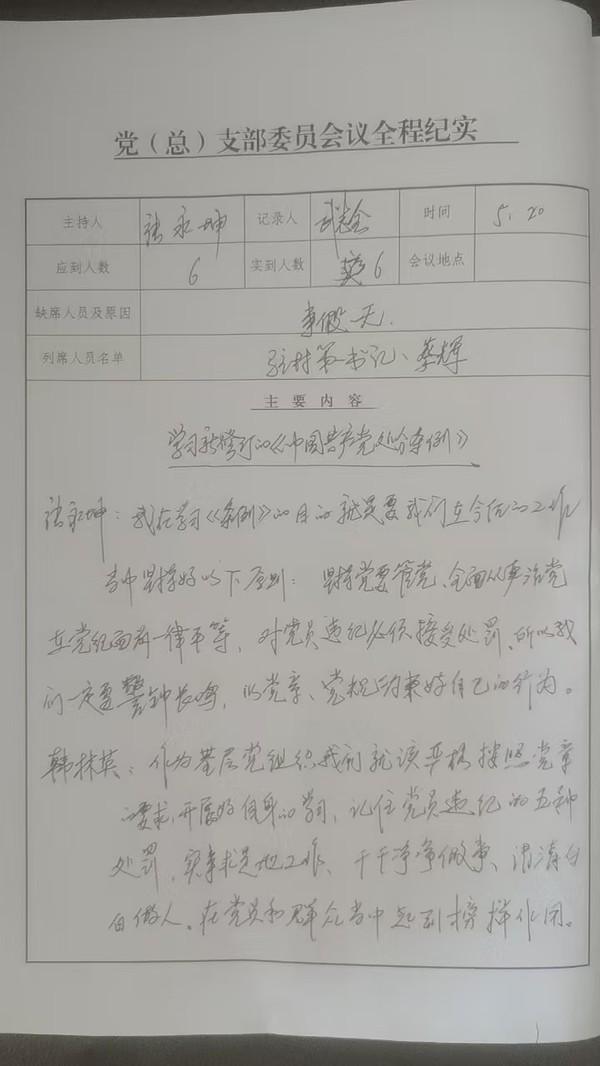 党（总）支部委员会议全程纪实
主持人 张永坤 记录人 时间 5.20
应到人数 6 实到人数 6 会议地点
缺席人员及原因 事假无.
列席人员名单 驻村第一书记、蔡辉
主要内容
学习新修订的《中国共产党处分条例》
张永坤：我在学习《条例》的目的就是要我们在今后的工作
当中坚持好以下原则：坚持党要管党、全面从严治党
在党纪面前一律平等，对党员违纪必须接受处罚、所以我
们一定要警钟长鸣，以党章、党规约束好自己的行为。
韩林英：作为基层党组织我们就该严格按照党章
的要求，开展好自身的学习，记住党员违纪的五种
处罚，实事求是地工作、干干净净做事、清清白
白做人。在党员和群众当中起到榜样作用。